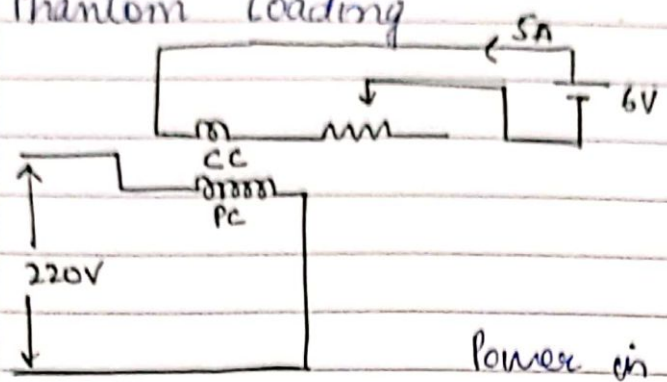 Phantom Loading
5A
6V
CC
PC
220V
Power in